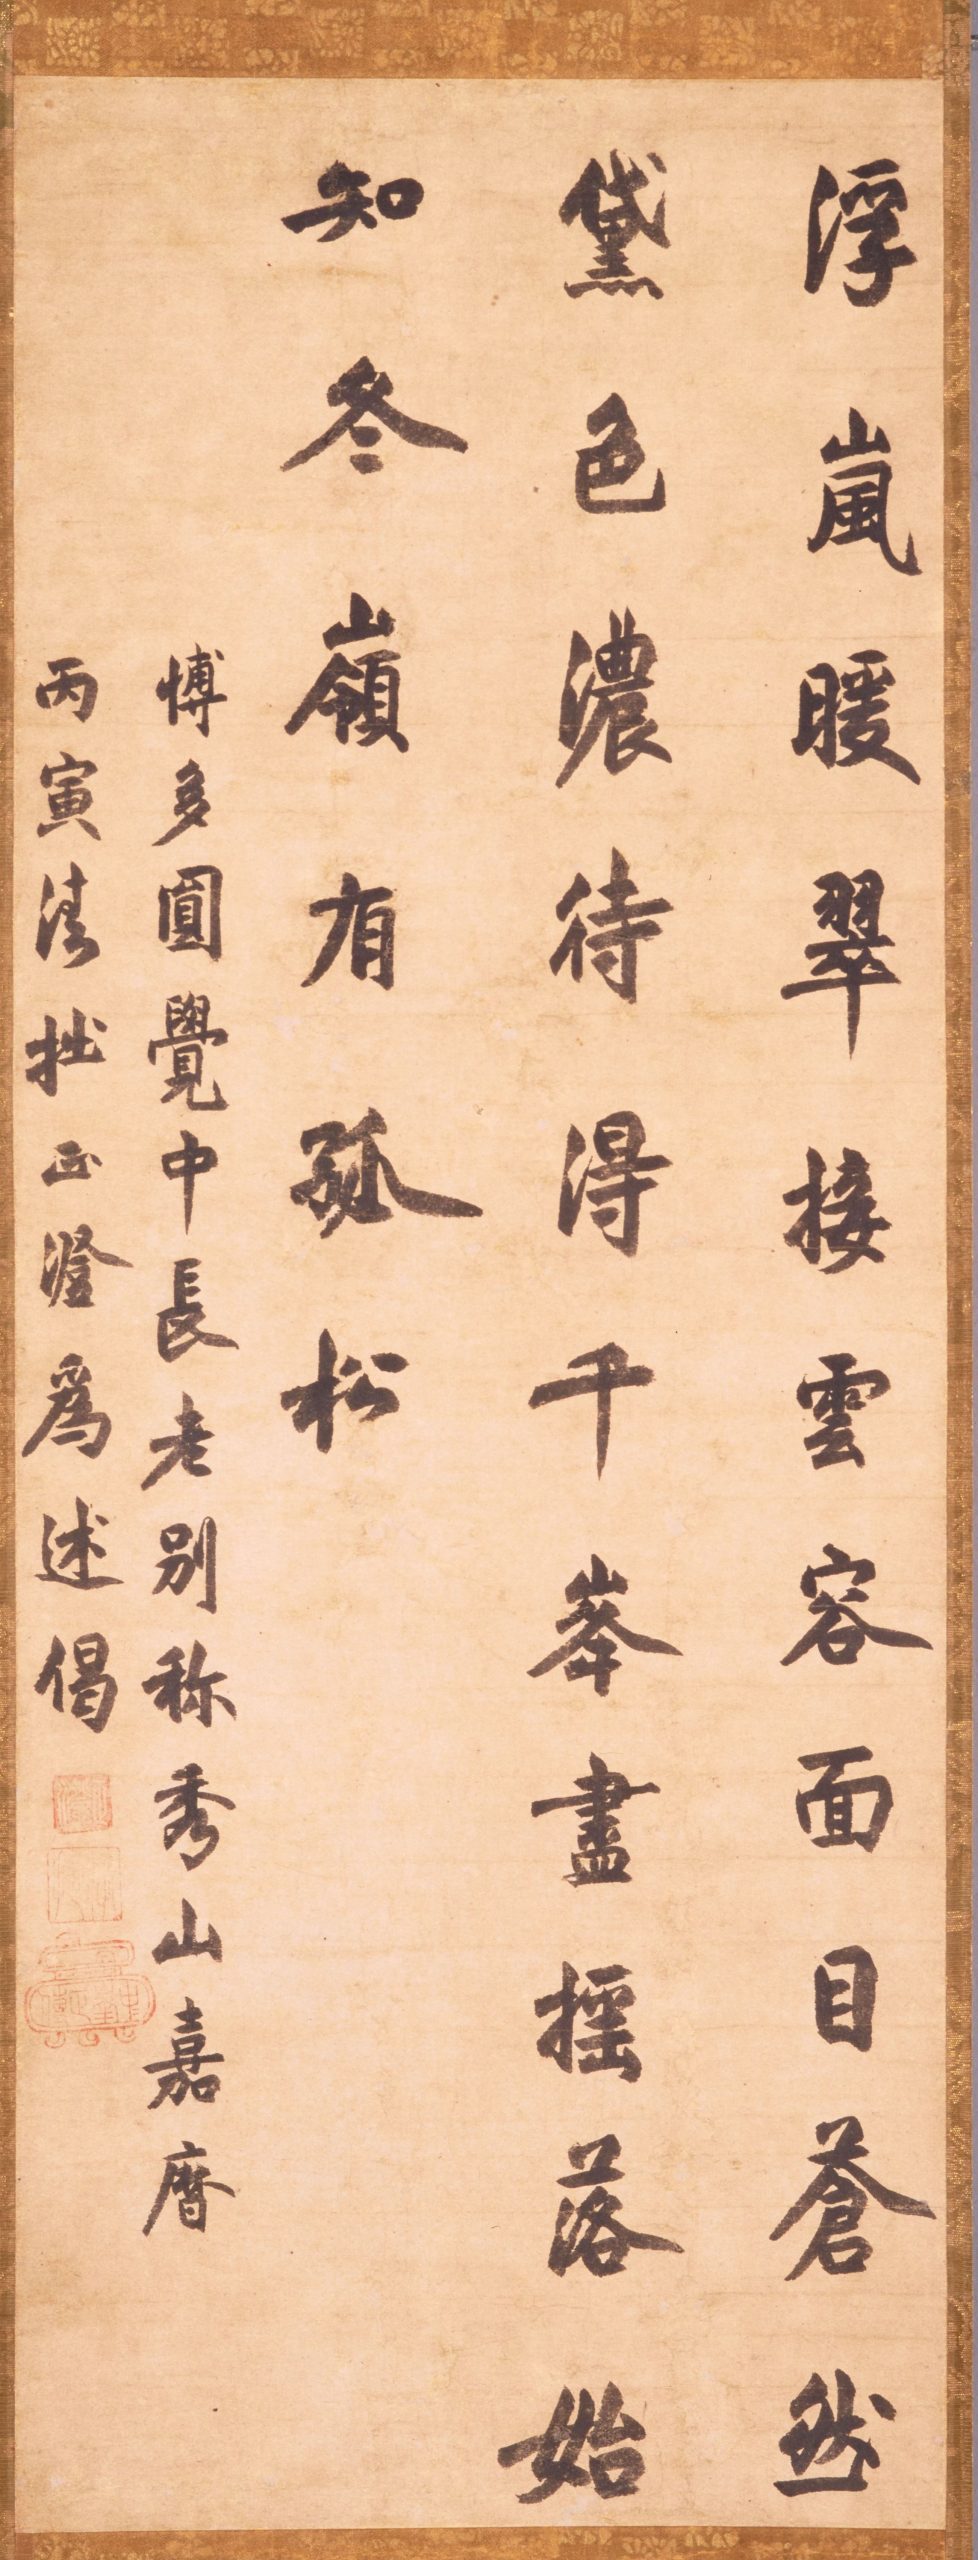 浮嵐暖翠接雲容面目蒼然
黛色濃待得千峯盡揺落始
知冬嶺有孤松
博多圓覺中長老別称秀山嘉暦
丙寅清拙正澄為述偈